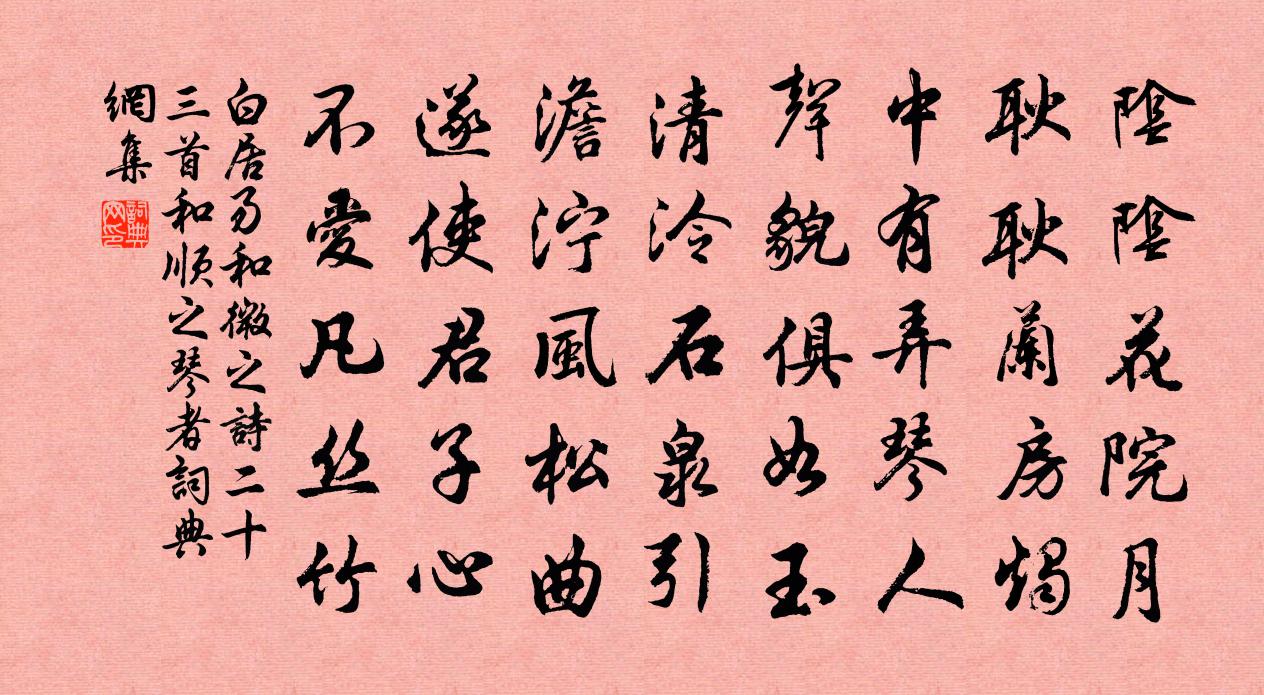 陰陰花院月
耿耿蘭房燭
中有弄琴人
聲貌俱如玉
清泠石泉引
澹濘風松曲
遂使君子心
不愛凡丝竹
白居易和微之詩二十
三首和順之琴者詞典
網集
詞典網印